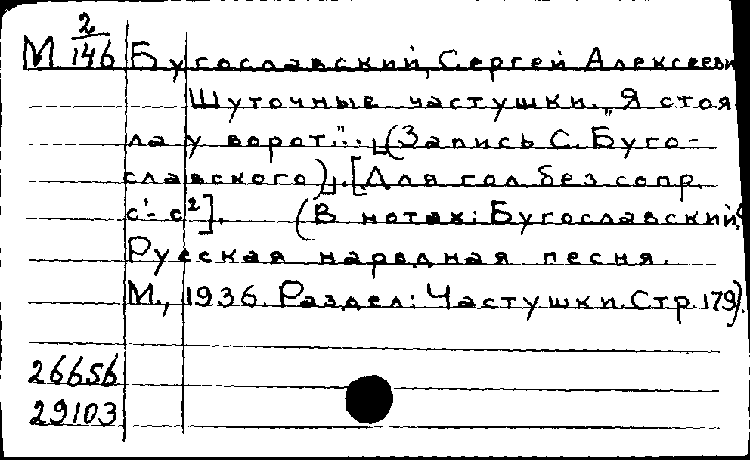 М 2/146 Бугославский, Сергей Алексееви
Шуточные частушки. "Я стоя
ла у ворот"... (Запись С. Буго-
славского). [Для гол. без сопр.
c¹- c²]. (В нотах: Бугославский,
Русская народная песня.
М., 1936. Раздел: Частушки. Стр. 179).
26656
29103